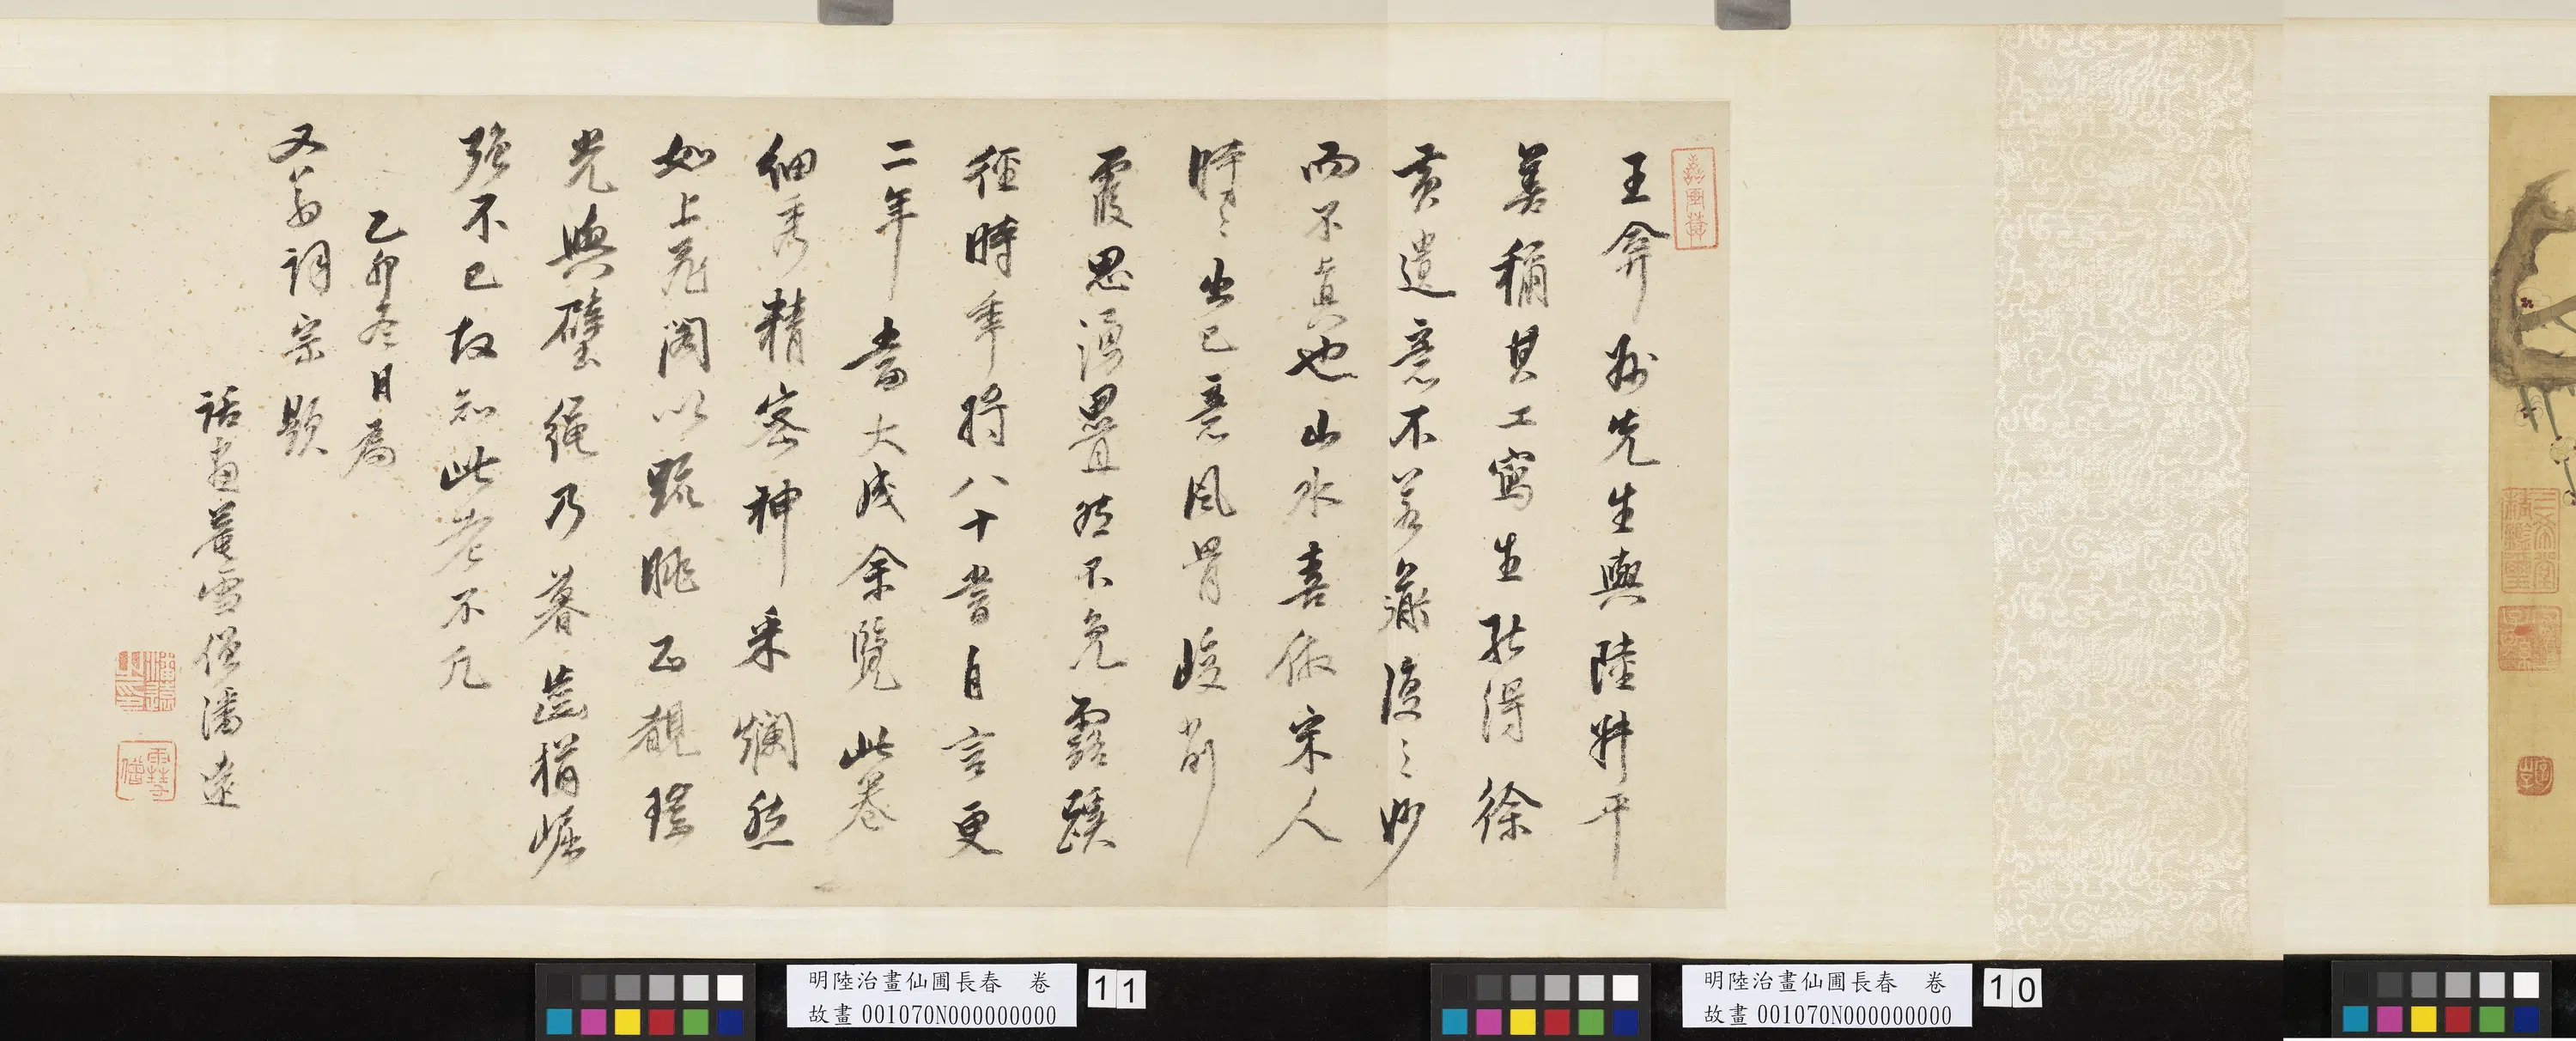 王弇州先生與陸叔平
善稱其工寫生能得徐
黃遺意不若復之妙
而不真也山水喜倣宋人
時時出己意風骨峻削
霞思湧疊然不免露蹊
徑時年將八十嘗自言更
二年當大成余覽此卷
細秀精密神采爛然
如上危閣以疏眺正靚瑤
光與璧繩乃暮齒猶崛
强不已故知此老不凡
乙卯冬日為
又翁詞宗題
話畫菴雪僧潘遠
潘遠之印
雪僧
明陸治畫仙圃長春 卷
故畫 001070N000000000
11
明陸治畫仙圃長春 卷
故畫 001070N000000000
10